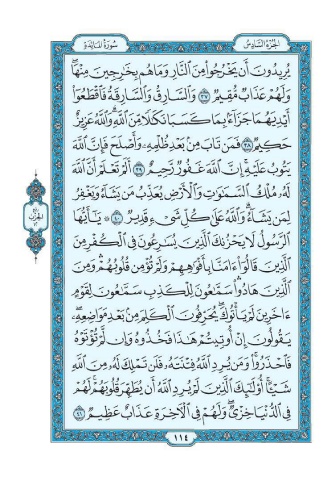 الجزء السادس
سورة المائدة
يُرِيدُونَ أَن يَخْرُجُوا۟ مِنَ ٱلنَّارِ وَمَا هُم بِخَٰرِجِينَ مِنْهَا ۖ
وَلَهُمْ عَذَابٌ مُّقِيمٌ ٣٧ وَٱلسَّارِقُ وَٱلسَّارِقَةُ فَٱقْطَعُوٓا۟
أَيْدِيَهُمَا جَزَآءًۢ بِمَا كَسَبَا نَكَٰلًا مِّنَ ٱللَّهِ ۗ وَٱللَّهُ عَزِيزٌ
حَكِيمٌ ٣٨ فَمَن تَابَ مِنۢ بَعْدِ ظُلْمِهِۦ وَأَصْلَحَ فَإِنَّ ٱللَّهَ
يَتُوبُ عَلَيْهِ ۗ إِنَّ ٱللَّهَ غَفُورٌ رَّحِيمٌ ٣٩ أَلَمْ تَعْلَمْ أَنَّ ٱللَّهَ
لَهُۥ مُلْكُ ٱلسَّمَٰوَٰتِ وَٱلْأَرْضِ يُعَذِّبُ مَن يَشَآءُ وَيَغْفِرُ
لِمَن يَشَآءُ ۗ وَٱللَّهُ عَلَىٰ كُلِّ شَىْءٍ قَدِيرٌ ٤٠ ۞ يَٰٓأَيُّهَا
ٱلرَّسُولُ لَا يَحْزُنكَ ٱلَّذِينَ يُسَٰرِعُونَ فِى ٱلْكُفْرِ مِنَ
ٱلَّذِينَ قَالُوٓا۟ ءَامَنَّا بِأَفْوَٰهِهِمْ وَلَمْ تُؤْمِن قُلُوبُهُمْ ۛ وَمِنَ
ٱلَّذِينَ هَادُوا۟ ۛ سَمَّٰعُونَ لِلْكَذِبِ سَمَّٰعُونَ لِقَوْمٍ
ءَاخَرِينَ لَمْ يَأْتُوكَ ۖ يُحَرِّفُونَ ٱلْكَلِمَ مِنۢ بَعْدِ مَوَاضِعِهِۦ ۖ
يَقُولُونَ إِنْ أُوتِيتُمْ هَٰذَا فَخُذُوهُ وَإِن لَّمْ تُؤْتَوْهُ
فَٱحْذَرُوا۟ ۚ وَمَن يُرِدِ ٱللَّهُ فِتْنَتَهُۥ فَلَن تَمْلِكَ لَهُۥ مِنَ ٱللَّهِ
شَيْـًٔا ۚ أُو۟لَٰٓئِكَ ٱلَّذِينَ لَمْ يُرِدِ ٱللَّهُ أَن يُطَهِّرَ قُلُوبَهُمْ ۚ لَهُمْ
فِى ٱلدُّنْيَا خِزْىٌ ۖ وَلَهُمْ فِى ٱلْءَاخِرَةِ عَذَابٌ عَظِيمٌ ٤١
١١٤